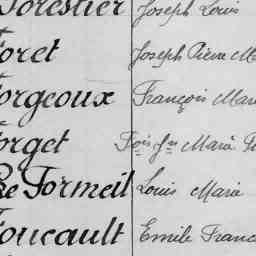 Forestier Joseph Louis
Foret Joseph Pierre M
Forgeoux François Mari
Forget Fois Jn Marie
De Formeil Louis Marie
Foucault Emile Franc